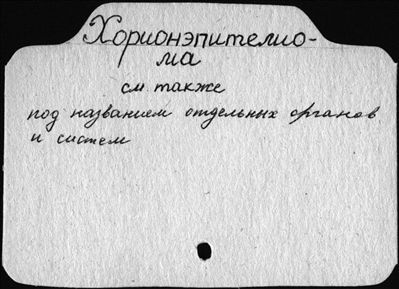 Хорионэпителио-
ма
см. также
под названием отдельных органов
и систем